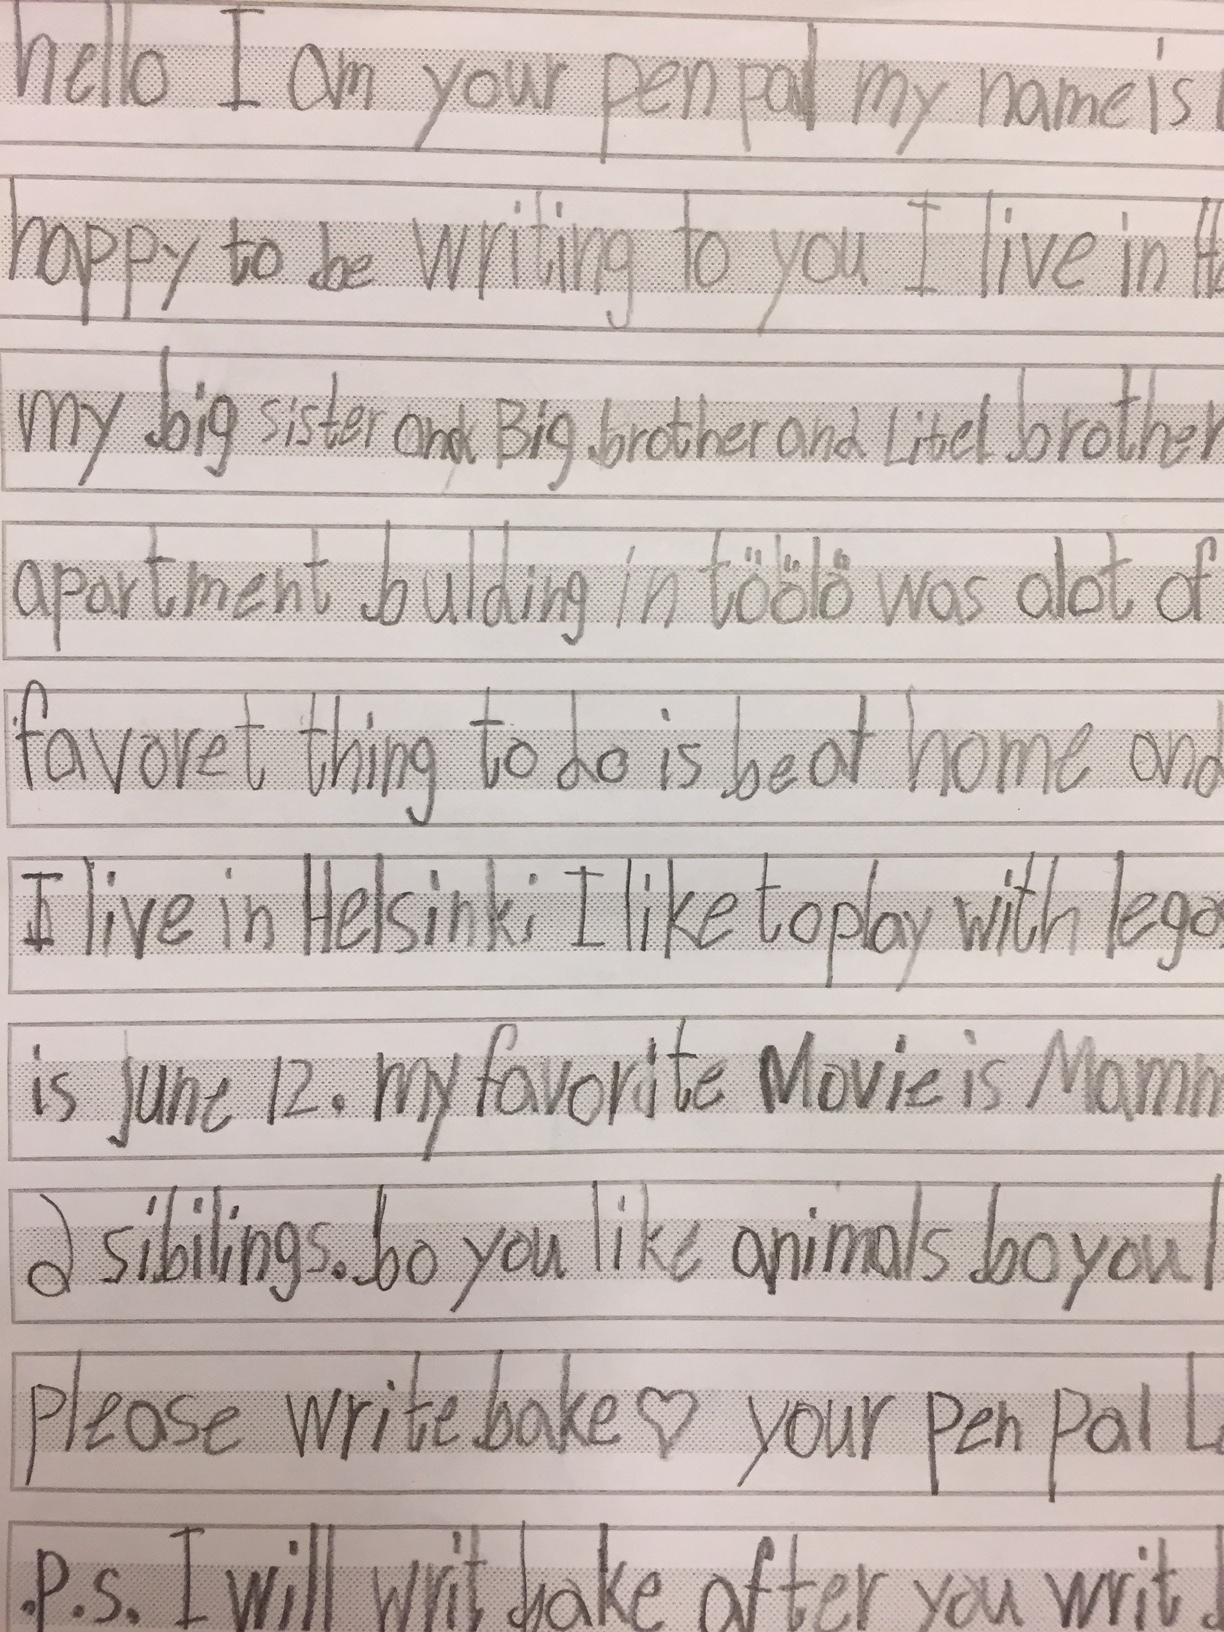 hello I am your pen pal my name is
happy to be writing to you I live in
my big sister and Big brother and Litel brother
apartment bulding in töölö was alot of
favoret thing to do is be at home and
I live in Helsinki I like to play with lego
is june 12. my favorite Movie is Mamm
2 sibilings. bo you like animals bo you l
please write bake♡ your pen pal L
P.S. I will writ bake after you writ